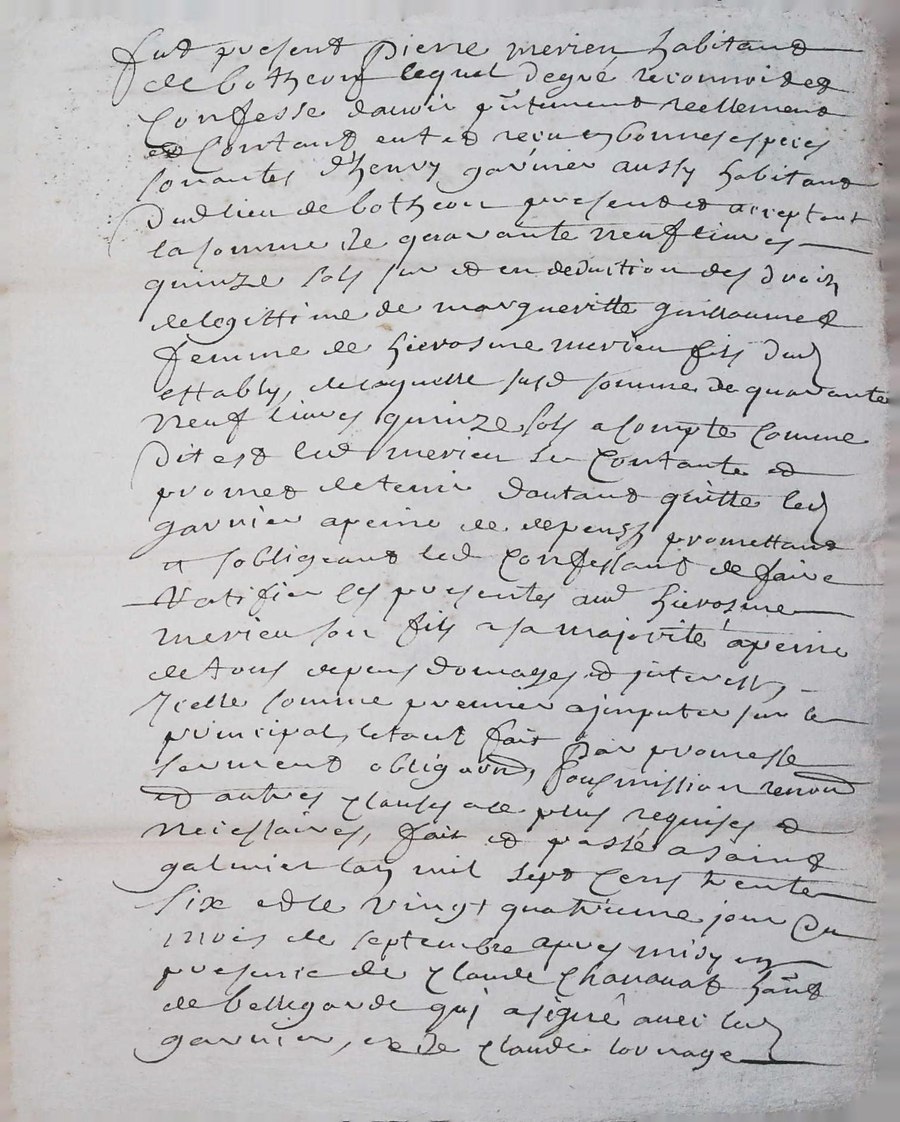 fut present pierre merieu habitant
de botheon lequel de gré reconnoit et
confesse davoir pntement reellement
et contant eut et receu en bonnes especes
sonantes d'henry garnier aussy habitant
dud lieu de botheon present et acceptant
la somme de quarante neuf livres
quinze sols sur et en deduction des droits
de legittime de margueritte guillaumet
femme de hierosme merieu fils dud
ettably, de laquelle susd somme de quarante
neuf livres quinze sols a compte comme
dit est led merieu se contante et
promet de tenir dautant quitte led
garnier a peine de depens promettant
et sobligeant led confessant de faire
ratifier les presentes aud hierosme
merieu son fils a sa majorité a peine
de tous depens domages et interests,
Icelle somme premier a jmputer sur le
principal, letout fait par promesse
serment obligaon, sousmission renon
et autres clauses de plus requises et
necessaires, fait et passé a saint
galmier lan mil sept cens trente
six et le vingt quatrieme jour du
mois de septembre apres midy en
presence de claude chavanat hant
de bellegarde qui a signé avec led
garnier, et de claude